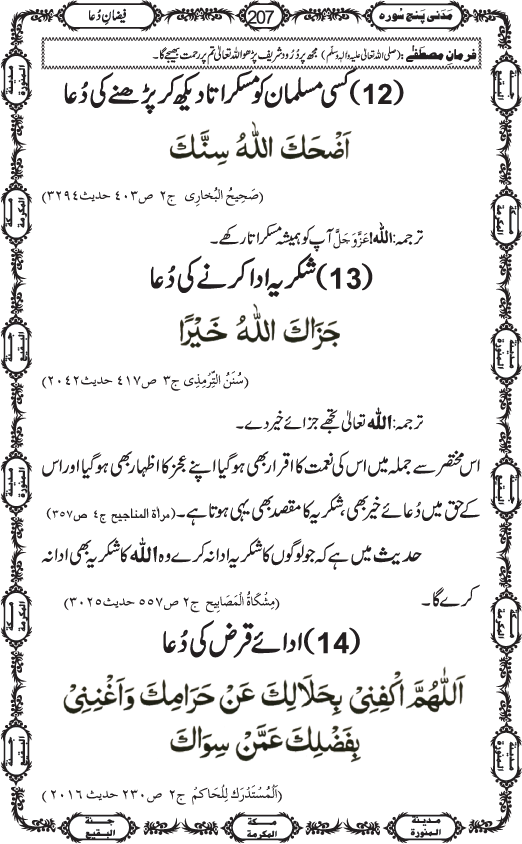 مَدَنی پَنج سُورہ
207
فیضانِ دُعا
فرمانِ مصطَفٰے : (صلی اللہ تعالیٰ علیہ والہٖ وسلّم) مجھ پر دُرُود شریف پڑھو اللہ تعالیٰ تم پر رحمت بھیجے گا۔
(12) کسی مسلمان کو مسکراتا دیکھ کر پڑھنے کی دُعا
اَضْحَكَ اللّٰهُ سِنَّكَ
(صَحِیحُ البُخارِی ج۲ ص۴۰۳ حدیث۳۲۹۴)
ترجمہ: اللہ عَزَّوَجَلَّ آپ کو ہمیشہ مسکراتا رکھے۔
(13) شکریہ ادا کرنے کی دُعا
جَزَاكَ اللّٰهُ خَيْرًا
(سُنَنُ التِّرمِذِی ج۳ ص۴۱۷ حدیث۲۰۴۲)
ترجمہ: اللہ تعالیٰ تجھے جزائے خیر دے۔
اس مختصر سے جملہ میں اس کی نعمت کا اقرار بھی ہو گیا اپنے عجز کا اظہار بھی ہو گیا اور اس
کے حق میں دُعائے خیر بھی، شکریہ کا مقصد بھی یہی ہوتا ہے۔ (مراٰۃ المناجیح ج٤ ص۳۵۷)
حدیث میں ہے کہ جو لوگوں کا شکریہ ادا نہ کرے وہ اللہ کا شکریہ بھی ادا نہ
کرے گا۔ (مِشْکَاۃُ الْمَصَابِیح ج۲ ص۵۵۷ حدیث۳۰۲۵)
(14) ادائے قرض کی دُعا
اَللّٰهُمَّ اكْفِنِيْ بِحَلَالِكَ عَنْ حَرَامِكَ وَاَغْنِنِيْ
بِفَضْلِكَ عَمَّنْ سِوَاكَ
(اَلْمُسْتَدْرَك لِلْحَاكِمُ ج۲ ص۲۳۰ حدیث۲۰۱۶)
مدينة المنورة
مكة المكرمة
جنة البقيع
مدينة المنورة
مكة المكرمة
جنة البقيع
جنة البقيع
مكة المكرمة
مدينة المنورة
جنة البقيع
مكة المكرمة
مدينة المنورة
جنة البقيع
مكة المكرمة
مدينة المنورة